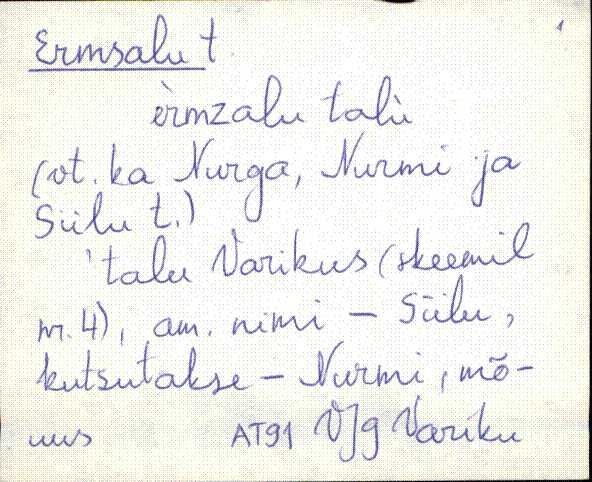 1
Ermsalu t.
èrmzalu talù
(vt. ka Nurga, Nurmi ja
Siilu t.)
'talu Varikus (skeemil
nr. 4), am. nimi – Siilu,
kutsutakse – Nurmi, mõ-
uus AT91 VJg Variku